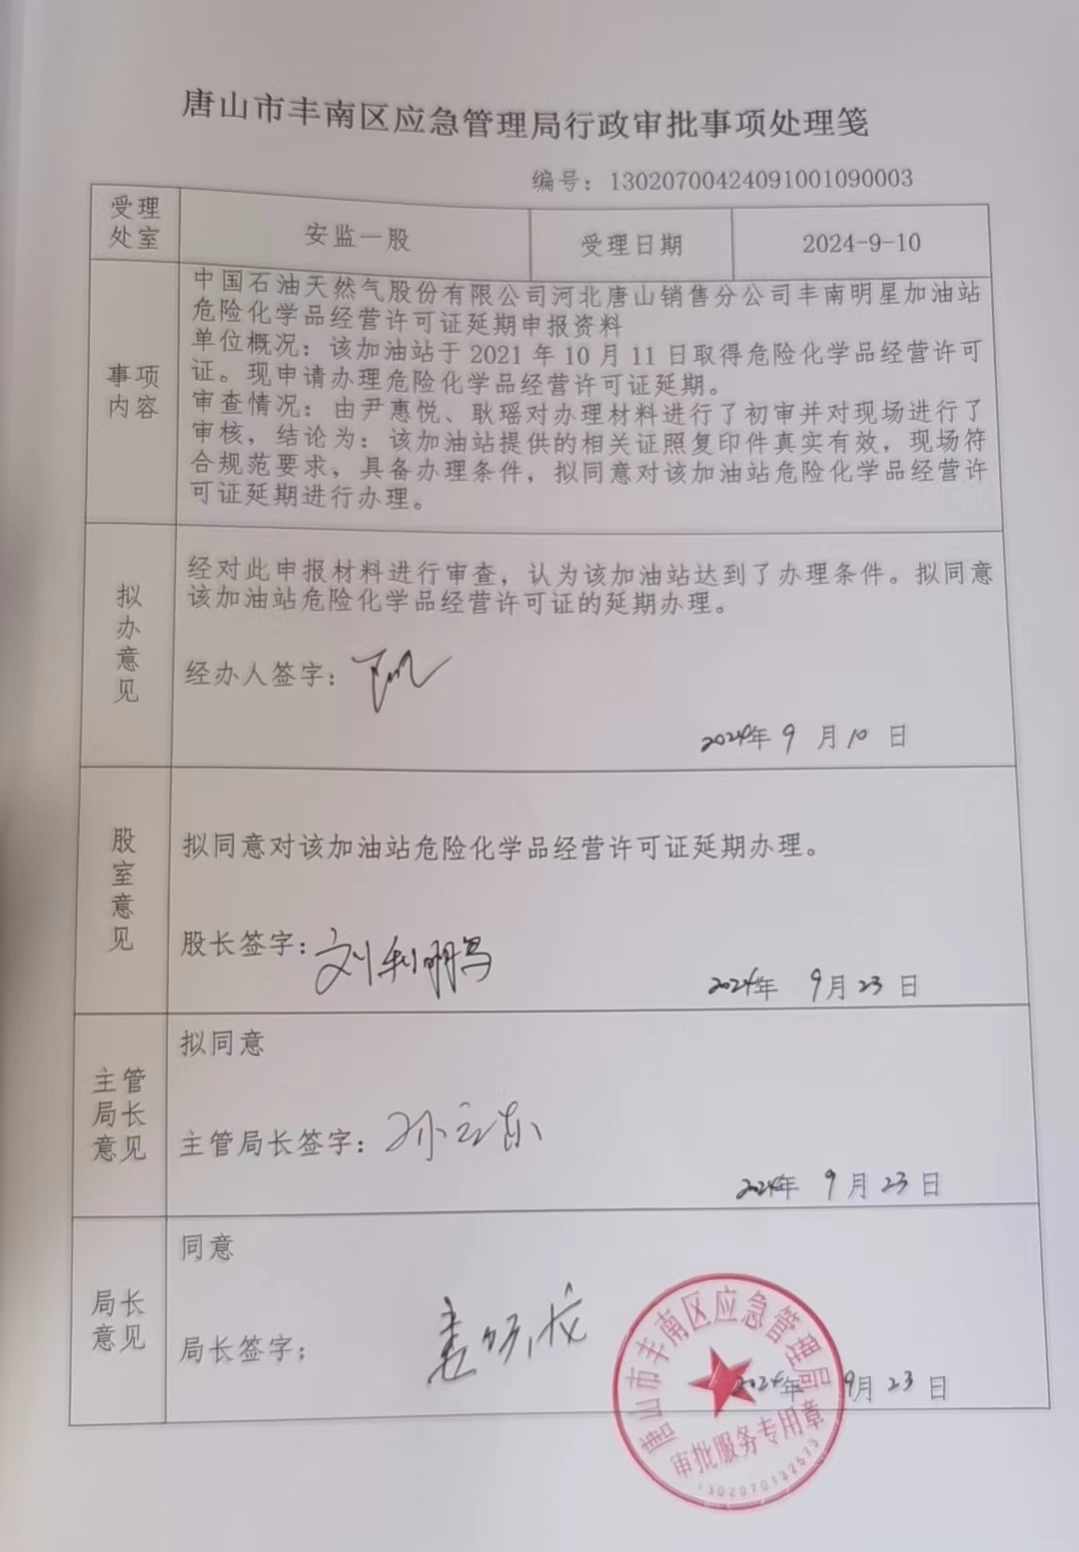 唐山市丰南区应急管理局行政审批事项处理笺
编号：13020700424091001090003
受理
处室
安监一股
受理日期
2024-9-10
事项
内容
中国石油天然气股份有限公司河北唐山销售分公司丰南明星加油站
危险化学品经营许可证延期申报资料
单位概况：该加油站于 2021 年 10 月 11 日取得危险化学品经营许可
证。现申请办理危险化学品经营许可证延期。
审查情况：由尹惠悦、耿瑶对办理材料进行了初审并对现场进行了
审核，结论为：该加油站提供的相关证照复印件真实有效，现场符
合规范要求，具备办理条件，拟同意对该加油站危险化学品经营许
可证延期进行办理。
拟
办
意
见
经对此申报材料进行审查，认为该加油站达到了办理条件。拟同意
该加油站危险化学品经营许可证的延期办理。
经办人签字：
2024年 9 月 10 日
股
室
意
见
拟同意对该加油站危险化学品经营许可证延期办理。
股长签字：刘利鹏
2024年 9月 23 日
主管
局长
意见
拟同意
主管局长签字：孙立东
2024年 9 月 23 日
局长
意见
同意
局长签字：
2024年 9月 23 日
唐山市丰南区应急管理局
审批服务专用章